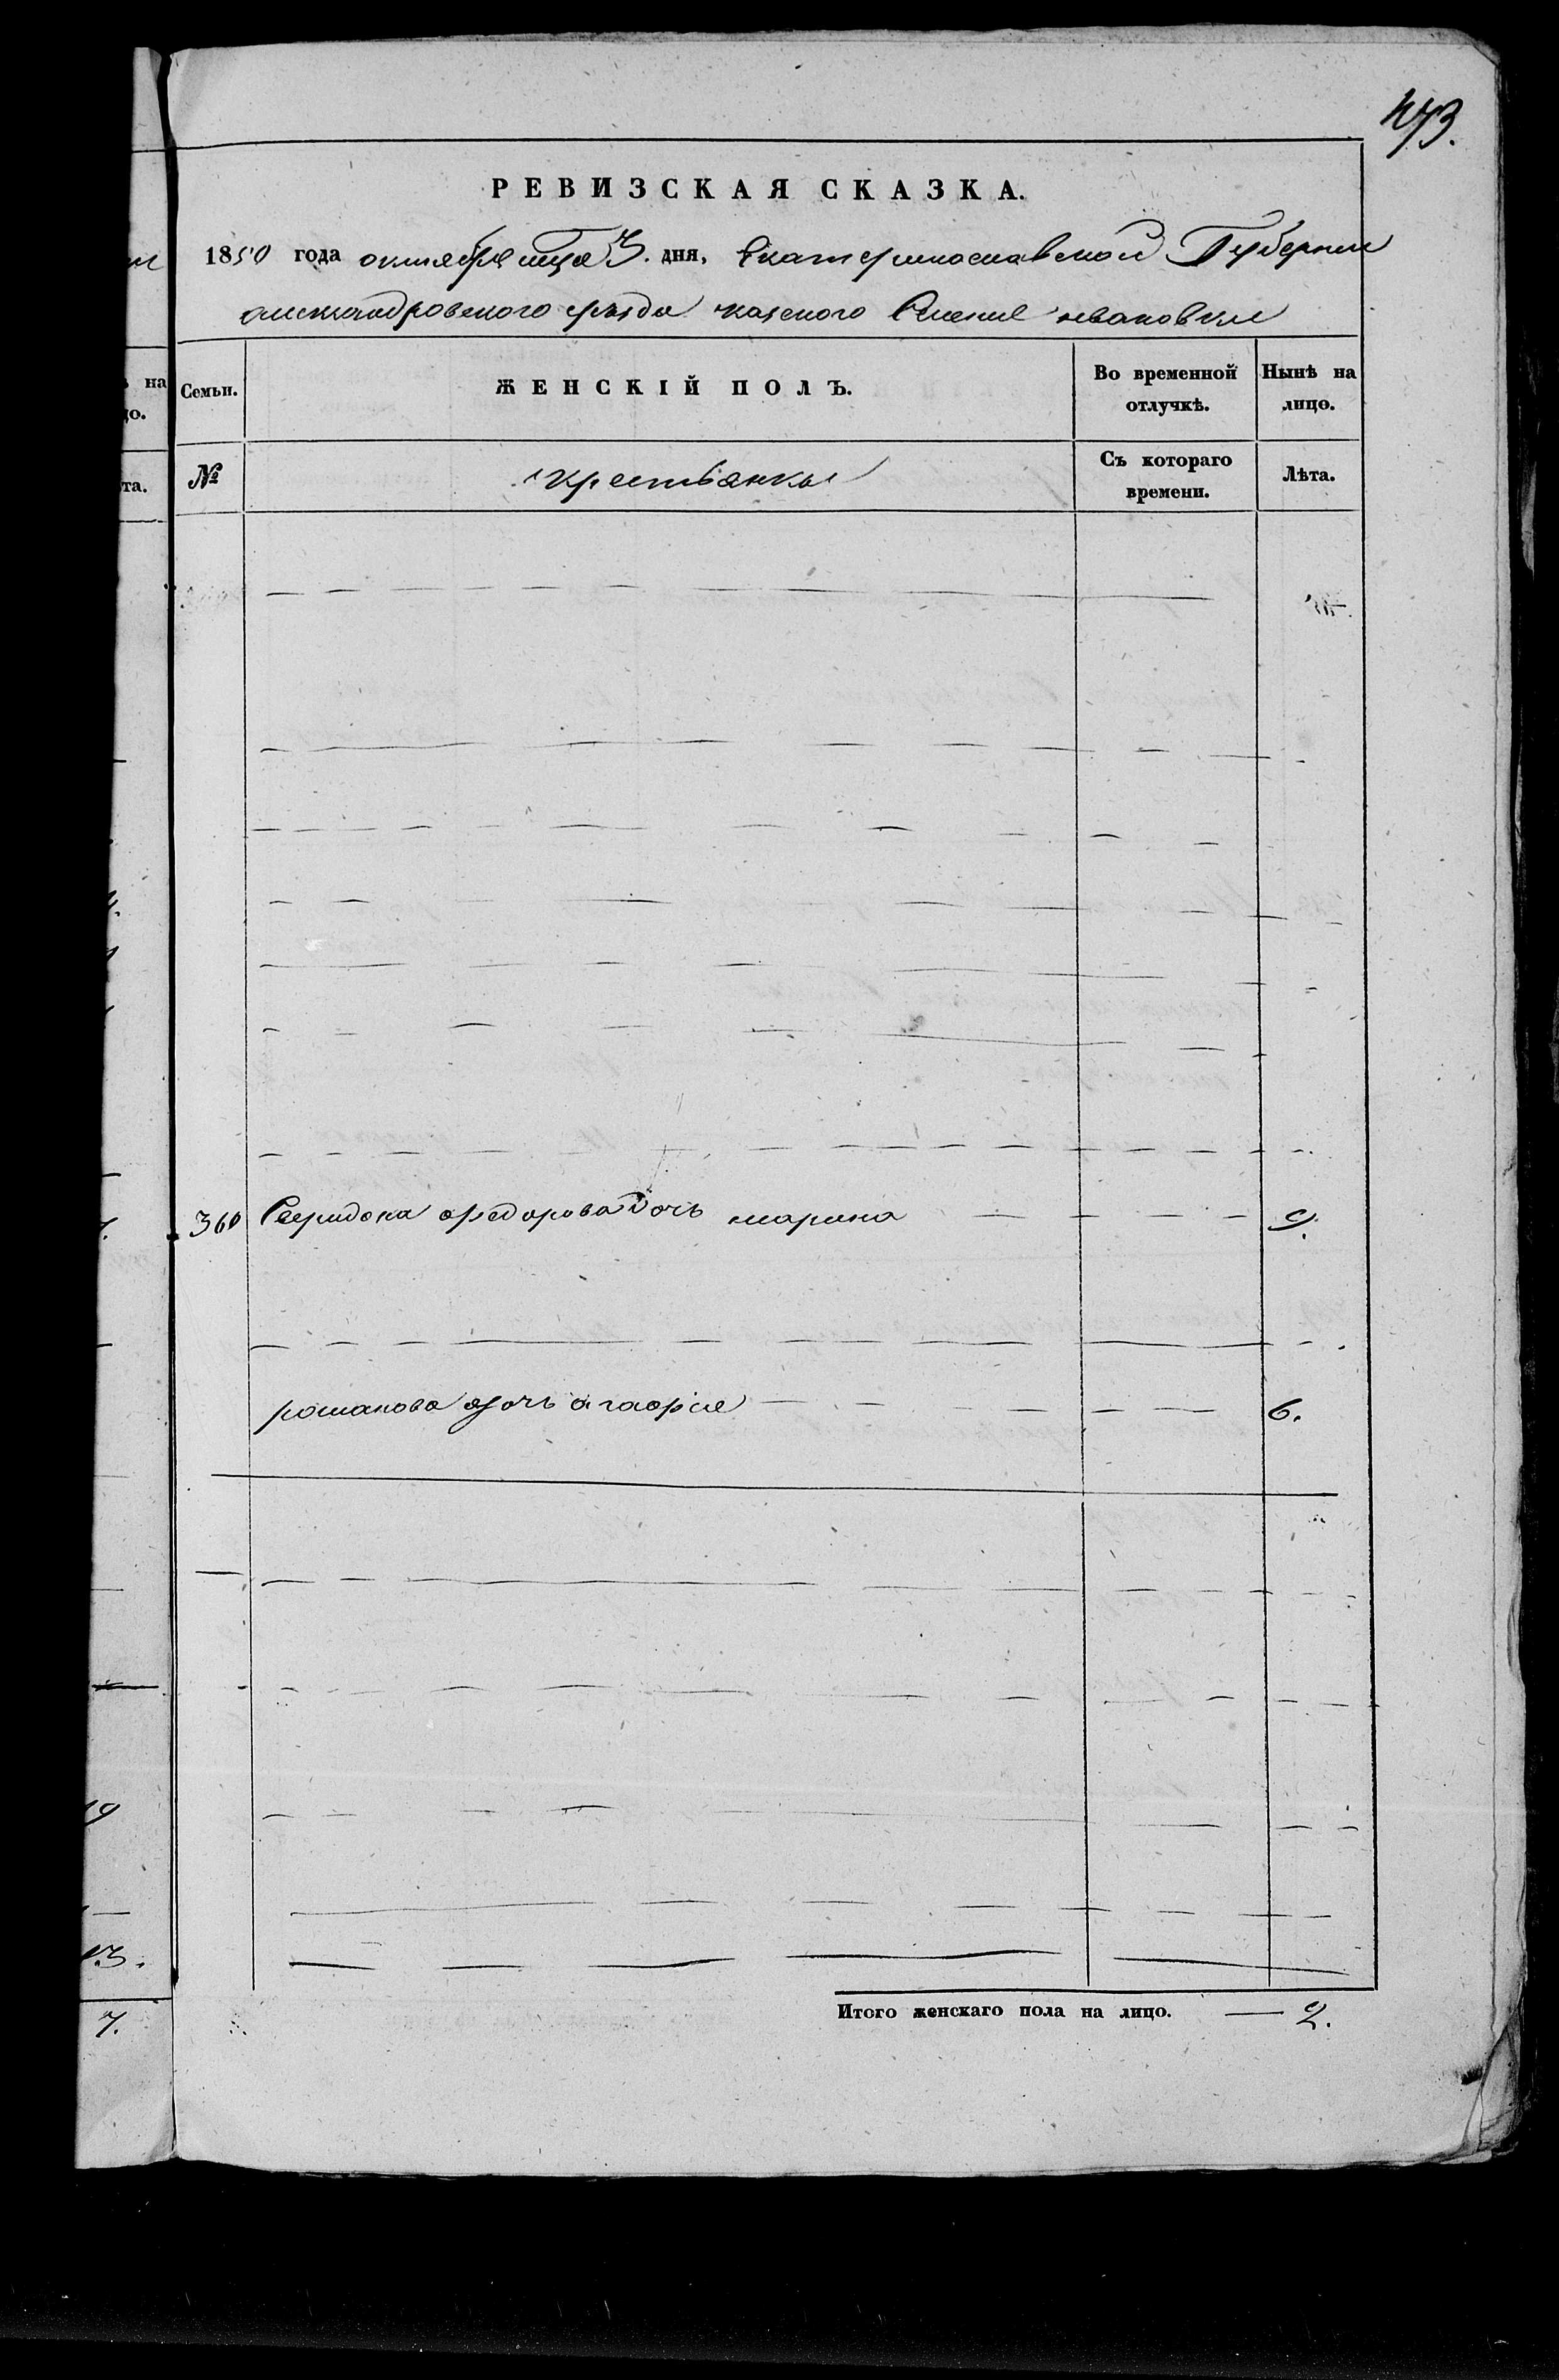 473.
РЕВИЗСКАЯ СКАЗКА.
1850 года октября мца 3. дня, Екатеринославской Губернии
александровского уезда казеного Селение ивановки
Семьи.
ЖЕНСКІЙ ПОЛЪ.
Во временной отлучкѣ.
Нынѣ на лицо.
№
крестьянки
Съ котораго времени.
Лѣта.
360 Свиридона федорова дочь марина 9.
романова дочь агафия 6.
Итого женскаго пола на лицо. — 2.
на
та.
19
13.
7.